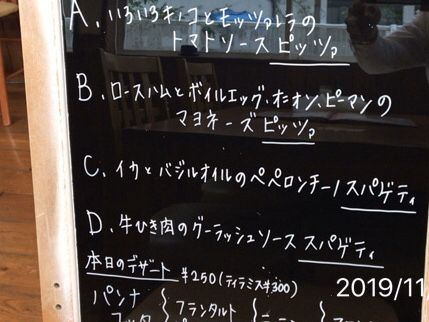 A. いろいろキノコとモッツァレラの
トマトソースピッツァ
B. ロースハムとボイルエッグ、オニオン、ピーマンの
マヨネーズピッツァ
C. イカとバジルオイルのペペロンチーノスパゲティ
D. 牛ひき肉のグーラッシュソーススパゲティ
本日のデザート ¥250(ティラミス¥300)
パンナ { フランタルト {
2019/11